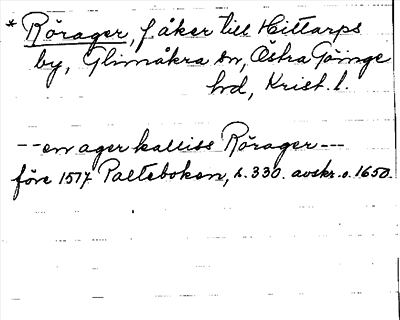 * Rörager, f åker till Hittarps
by, Glimåkra sn, Östra Göinge
hd, Krist. l.
--en ager kalliss Rörager---
före 1577 Palteboken, s. 330. avskr. o. 1650.